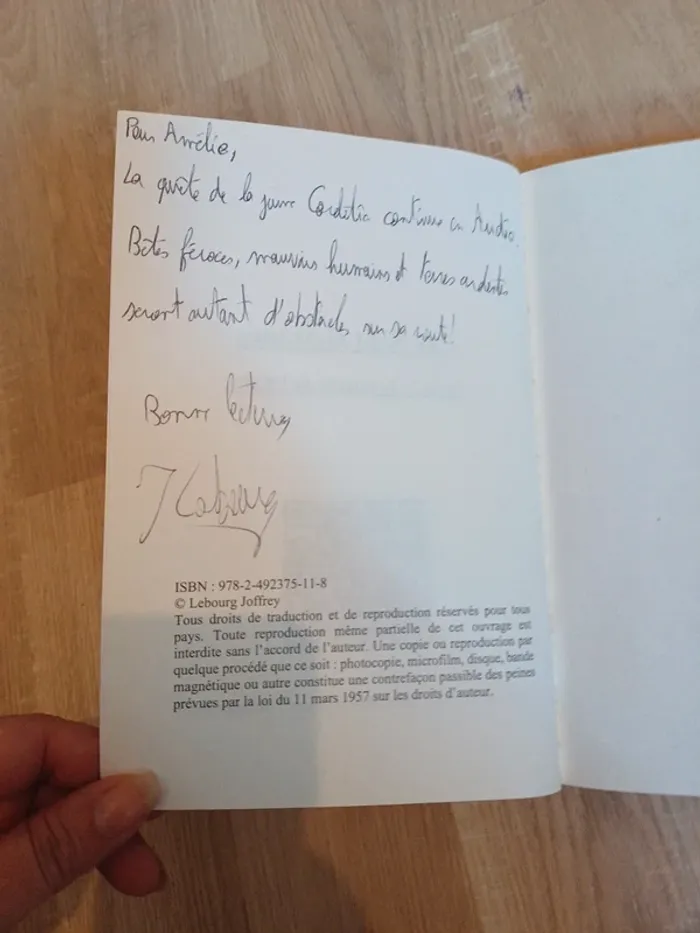 Pour Amélie,
La quête de la jeune continue en
Bêtes féroces, mauvais humains et terres ardentes
seront autant d'obstacles sur sa route!
Bonne lecture
J Lebourg
ISBN : 978-2-492375-11-8
© Lebourg Joffrey
Tous droits de traduction et de reproduction réservés pour tous
pays. Toute reproduction même partielle de cet ouvrage est
interdite sans l'accord de l'auteur. Une copie ou reproduction par
quelque procédé que ce soit : photocopie, microfilm, disque, bande
magnétique ou autre constitue une contrefaçon passible des peines
prévues par la loi du 11 mars 1957 sur les droits d'auteur.